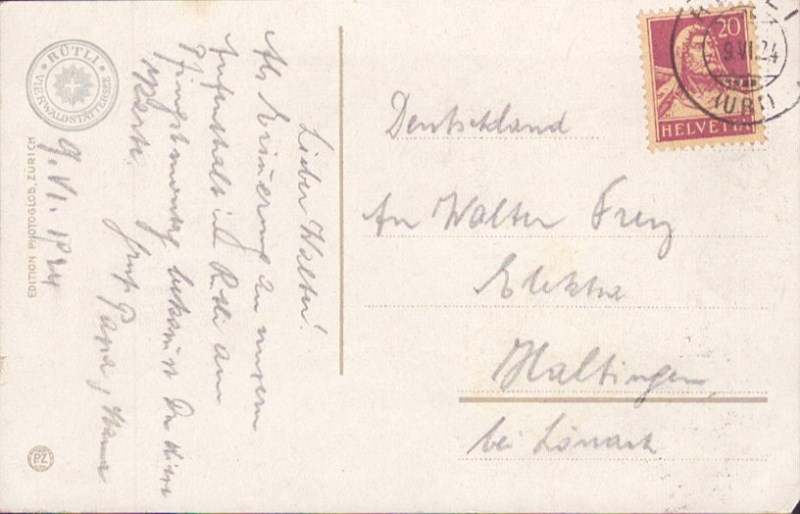 RÜTLI
VIERWALDSTÄTTERSEE
EDITION PHOTOGLOB, ZÜRICH
PZ
Lieber Walter!
Als Erinnerung an unsern
Aufenthalt im Rütli am
Pfingstmontag bekommst Du diese
Karte.
Gruß Papa, Mama
9. VI. 1924
20
HELVETIA
9.VI.24
(URI)
Deutschland
An Walter Frey
Elektra
Haltingen,
bei Lörrach